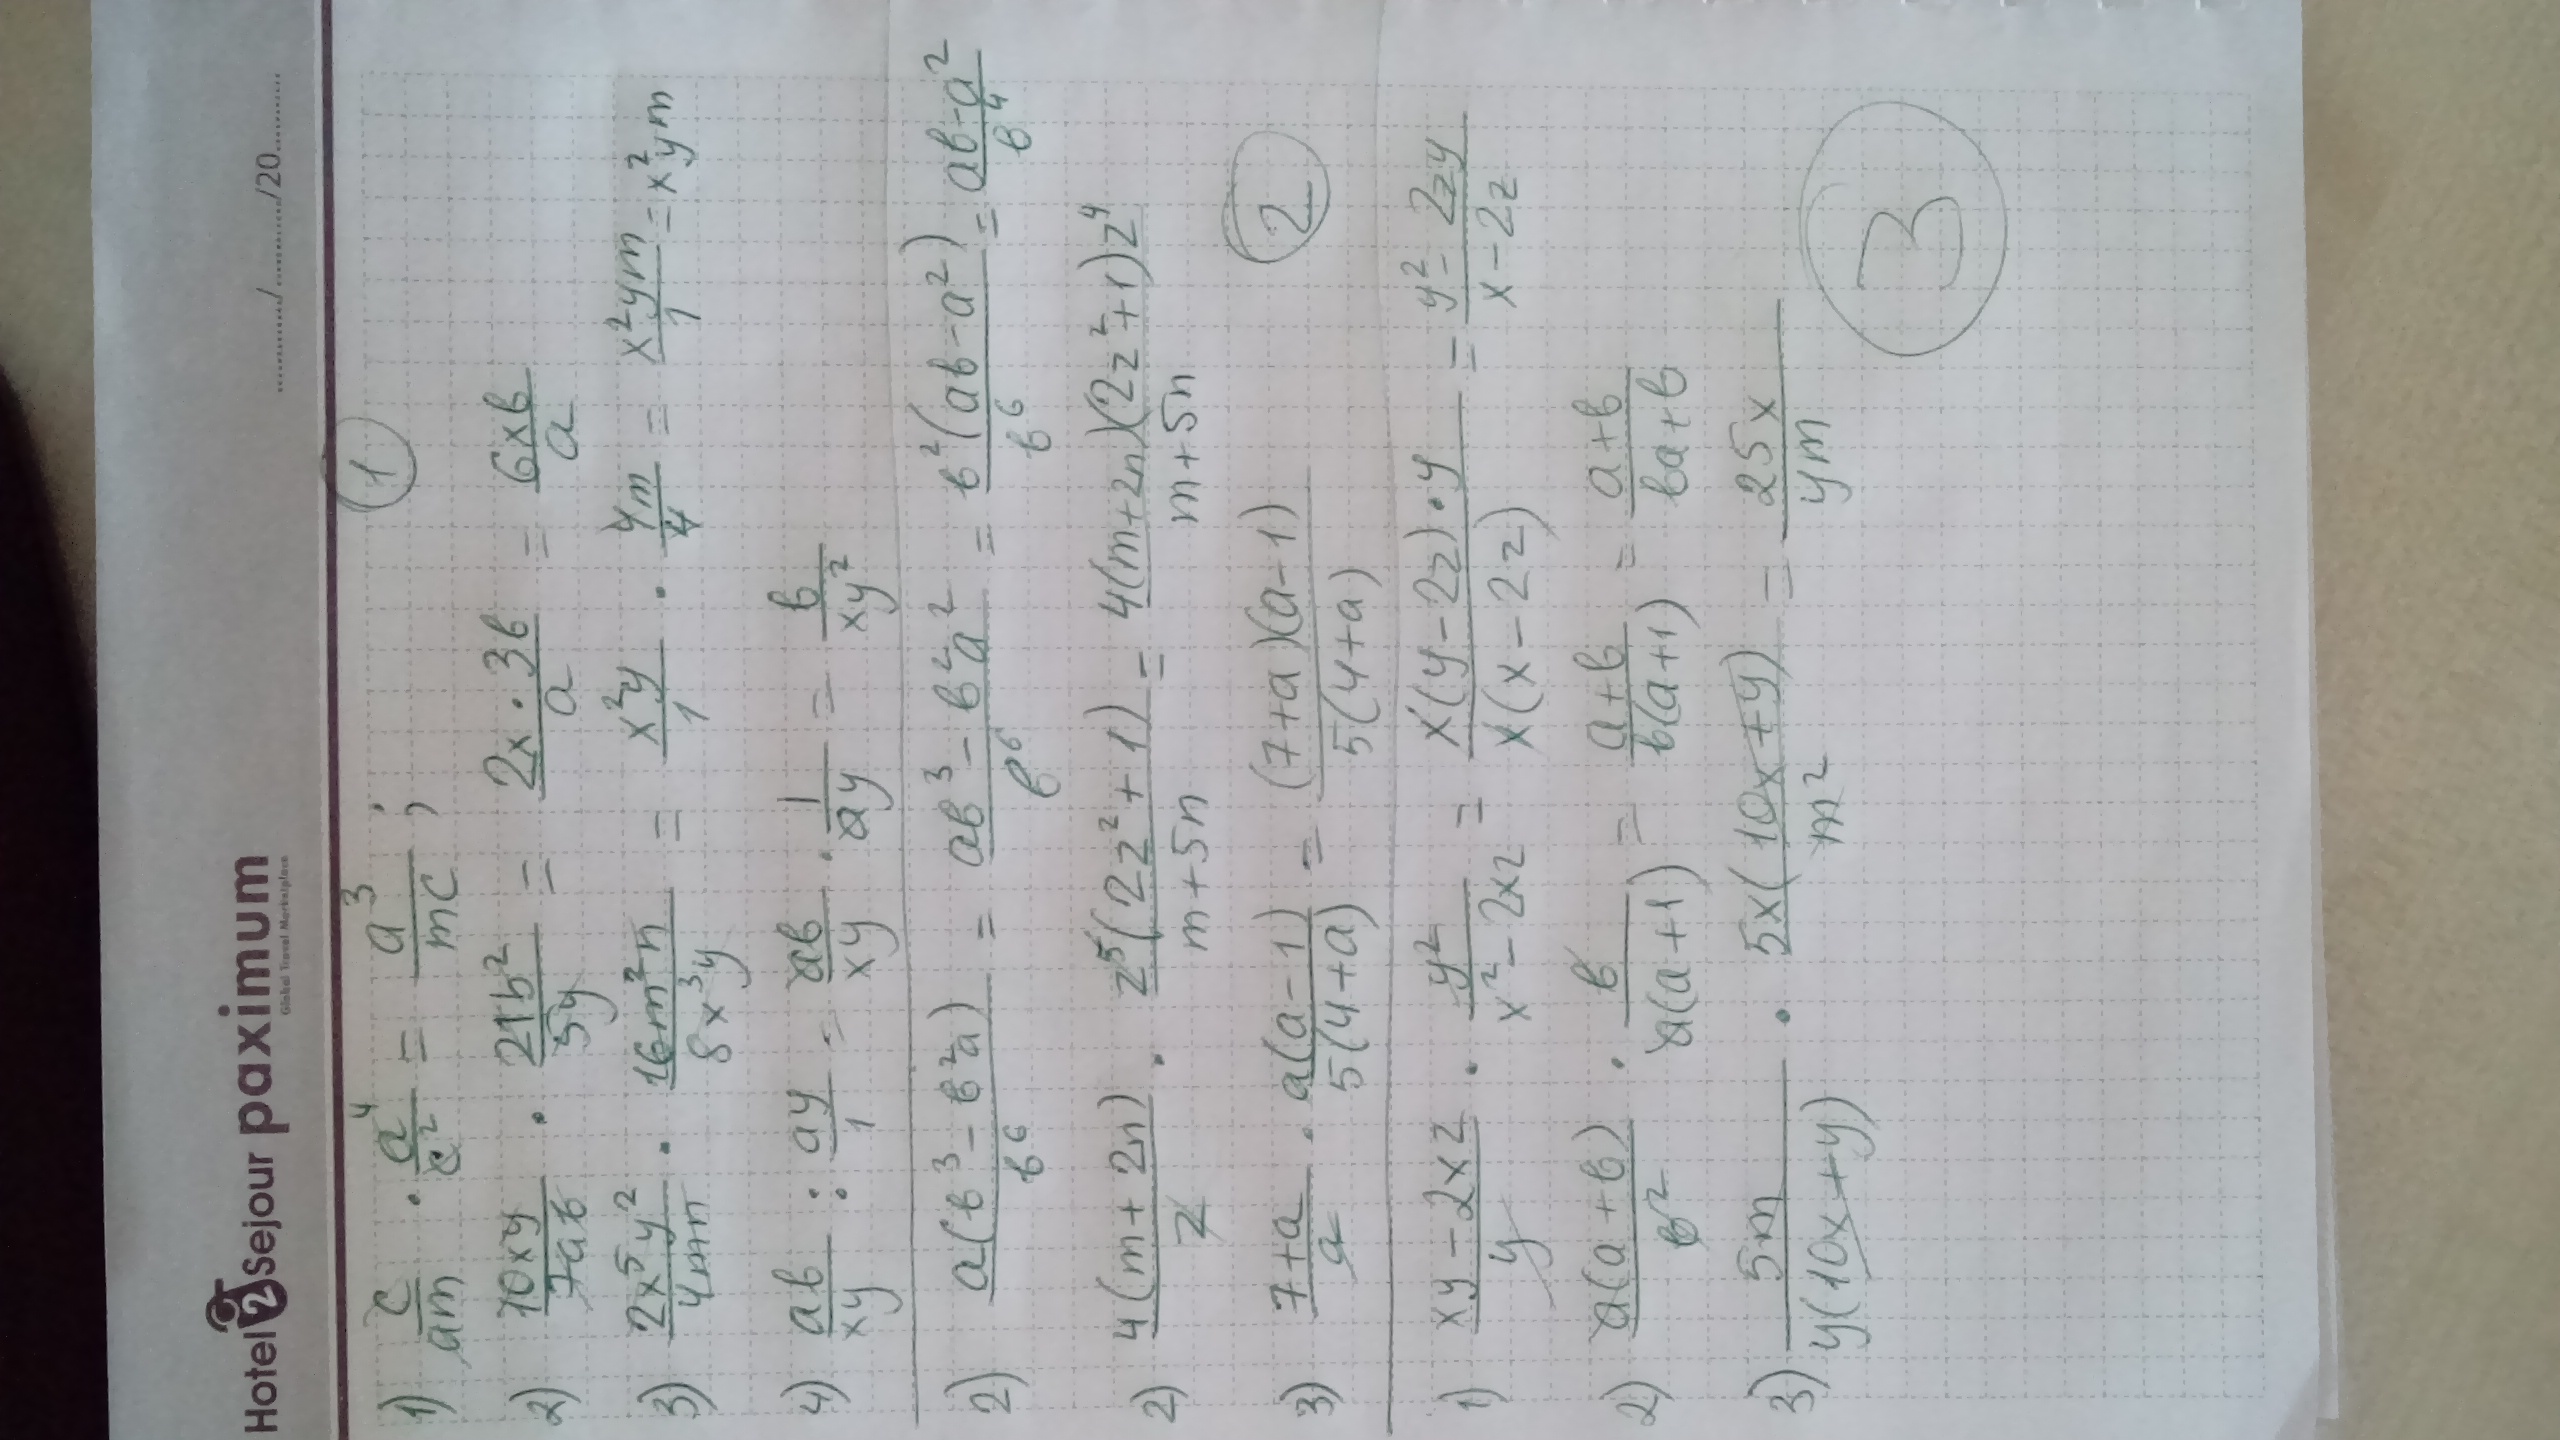 Hotel 2 sejour paximum
Global Travel Marketplace
......../......../20........
①
1) c/am · a⁴/c² = a³/mc ;
2) 10xy/7ab · 21b²/5y = 2x · 3b/a = 6xb/a
3) 2x⁵y²/4mn · 16m²n/8x³y = x²y/1 · 4m/4 = x²ym/1 = x²ym
4) ab/xy : ay/1 = ab/xy · 1/ay = b/xy²
2) a(b³ - b²a)/b⁶ = ab³ - b²a²/b⁶ = b²(ab - a²)/b⁶ = ab - a²/b⁴
2) 4(m + 2n)/z · z⁵(2z² + 1)/m + 5n = 4(m + 2n)(2z² + 1)z⁴/m + 5n
3) 7 + a/a · a(a - 1)/5(4 + a) = (7 + a)(a - 1)/5(4 + a)
②
1) xy - 2xz/y · y²/x² - 2xz = x(y - 2z) · y/x(x - 2z) = y² - 2zy/x - 2z
2) a(a + b)/b² · b/a(a + 1) = a + b/b(a + 1) = a + b/ba + b
3) 5m/y(10x + y) · 5x(10x + y)/m² = 25x/ym
③